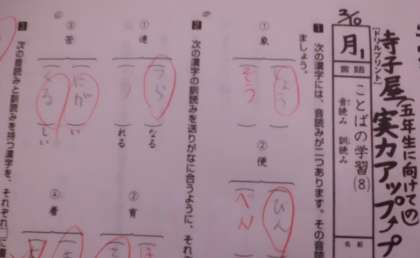 寺子屋 実力アップ
五年生に向けて
ドリルプリント
3/10
月1
言語
ことばの学習(8)
音読み 訓読み
名前
1 次の漢字には、音読みが二つあります。その音読
ましょう。
① 象
ぞう
② 便
ひん
べん
2 次の漢字の訓読みを送りがなに合うように、それぞ
① 連
つら
なる
れる
② 育
③ 苦
にが
い
しい
④ 着
3 次の音読みと訓読みを持つ漢字を、それぞれ